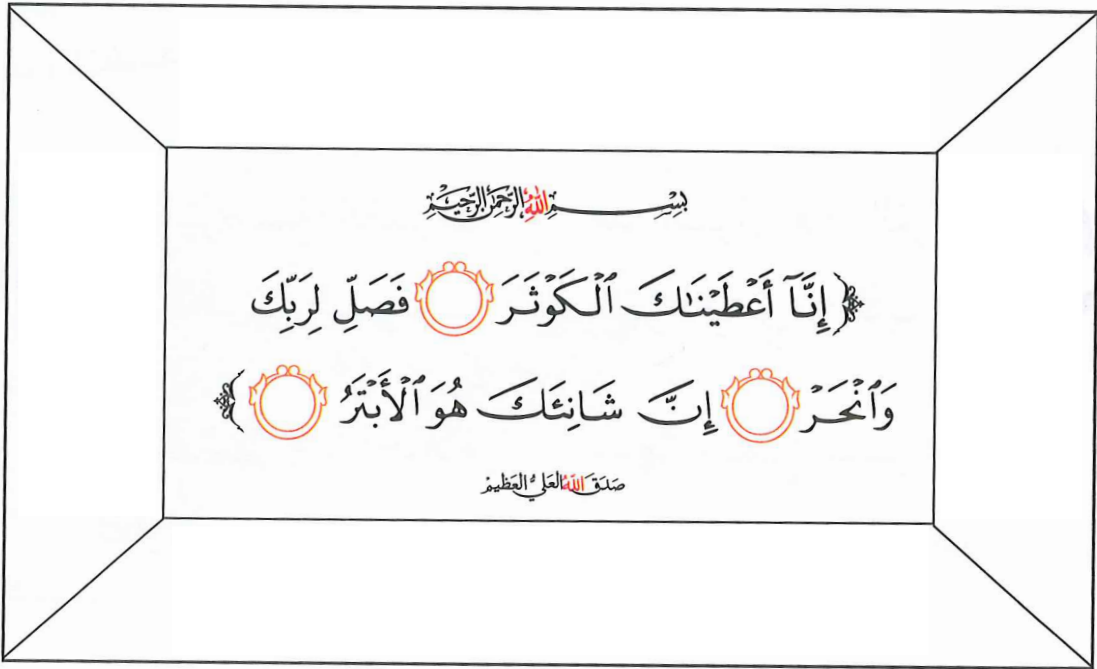 بِسْمِ اللَّهِ الرَّحْمَٰنِ الرَّحِيمِ
﴿ إِنَّآ أَعْطَيْنَٰكَ ٱلْكَوْثَرَ فَصَلِّ لِرَبِّكَ
وَٱنْحَرْ إِنَّ شَانِئَكَ هُوَ ٱلْأَبْتَرُ ﴾
صَدَقَ اللَّهُ العَلِيُّ العَظِيمْ